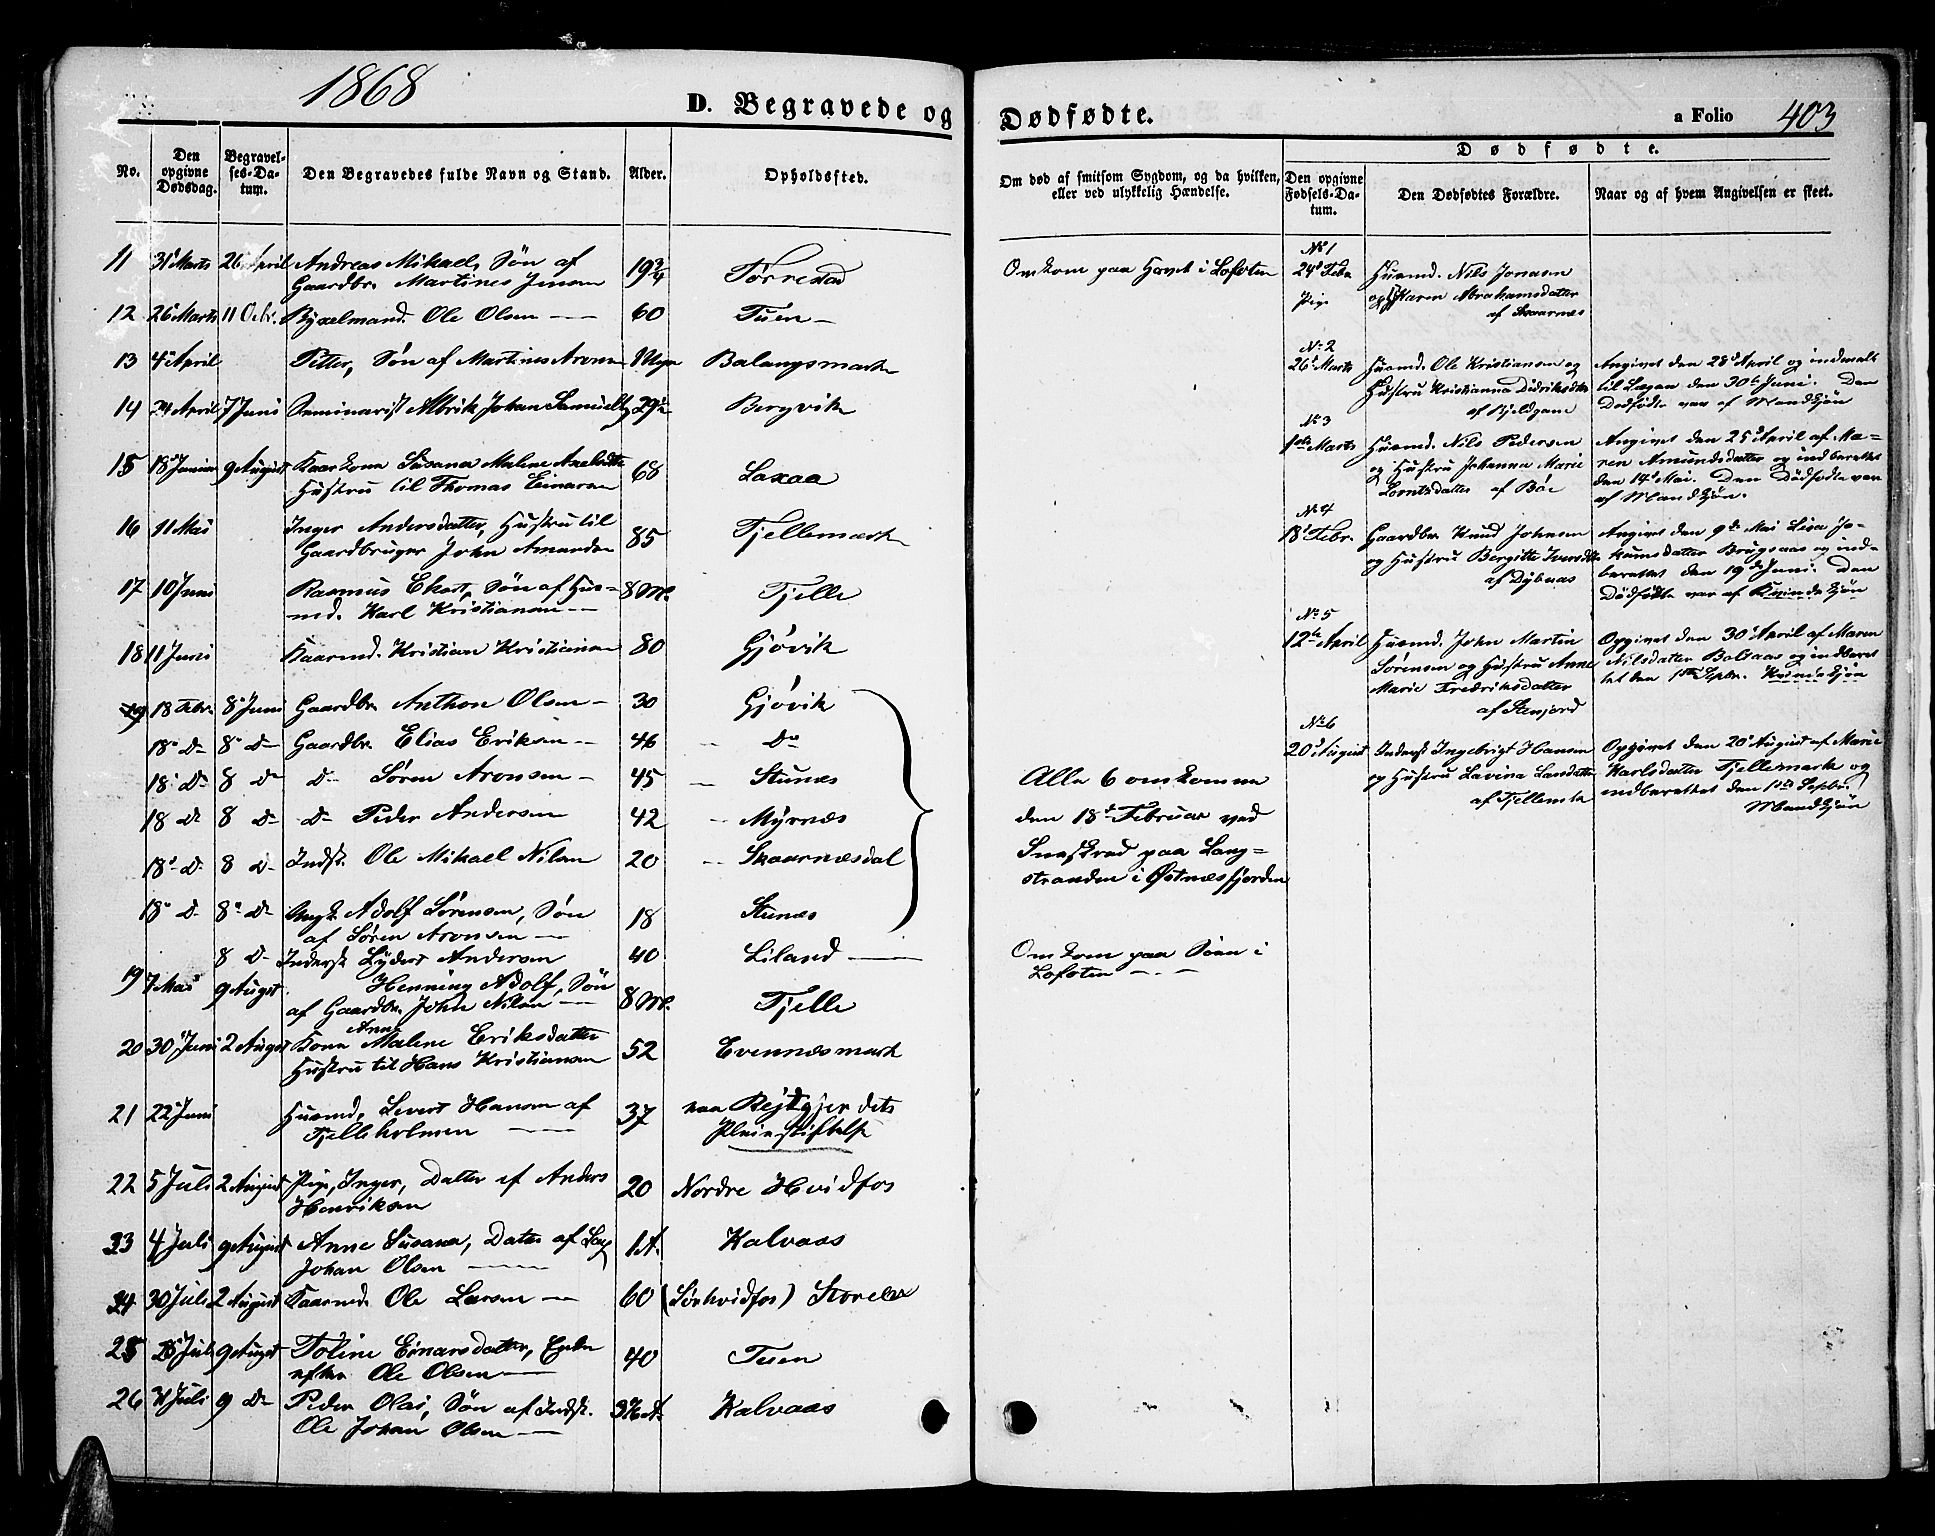 1868
D. Begravede og
Dødfødte.
a Folio 403
No.
Den opgivne Dødsdag.
Begravelses-Datum.
Den Begravedes fulde Navn og Stand.
Alder.
Opholdssted.
Om død af smitsom Sygdom, og da hvilken, eller ved ulykkelig Hændelse.
Dødfødte.
Den opgivne Fødsels-Datum.
Den Dødfødtes Forældre.
Naar og af hvem Angivelsen er skeet.
11 31 Marts 26 April Andreas Mikael, Søn af 19 3/4 Tørrestad Omkom paa Havet i Lofoten
Gaardbr. Martines Jensen
12 26 Marts 11 Oct. Byxelmand Ole Olsen 60 Tuen
13 4 April Petter, Søn af Martines Aronsen Balangsmark
14 24 April 7 Juni Seminarist Albrik Johan 29 1/2 Bergvik
15 18 9 August Kaarkone Susana Malene 68 Laxaa
Hustru til Thomas Einarsen
16 11 Mai Inger Andersdatter, Hustru til 85 Tjellemark
Gaardbruger John Amundsen
17 10 Juni Rasmus Søn af Hus- 8 M. Tjelle
md. Karl Kristiansen
18 11 Juni Kaarmd. Kristian Kristiansen 80 Gjøvik
19 18 Febr. 8 Juni Gaardbr. Anthon Olsen 30 Gjøvik
18 D 8 D Gaardbr. Elias Eriksen 46 Do
18 D 8 D D Søren Aronsen 45 Stunes
18 D 8 D D Peder Andersen 42 Myrnæs
18 D 8 D Indst. Ole Mikael Nilsen 20 Skaarnæsdal
18 D 8 D Ungk. Adolf Sørensen, Søn 18 Stunes
af Søren Aronsen
Alle 6 omkomne
den 18de Februar ved
Sneskred paa Lang-
stranden i Østnæsfjorden
8 D Inderst Lydert Andersen 40 Liland Omkom paa Søen i
Lofoten
19 7 Mai 9 August Henning Adolf, Søn 8 M. Tjelle
af Gaardbr. John Nilsen
20 30 Juni 2 August Kone Anne Malene Eriksdatter 52 Evennesmark
Hustru til Hans Kristiansen
21 22 Juni Husmd. Severt Hansen af 37 paa Rejtgjerdets
Tjelleholmen Pleiestiftelse
22 5 Juli 2 August Pige, Inger, Datter af Anders 20 Nordre Hvidfos
Henriksen
23 4 Juli 9 August Anne Susana, Datter af 1 A. Kalvaas
Johan Olsen
24 30 Juli 2 August Kaarmd. Ole Larsen 60 (Sørhvidfos)
25 Juli 9 August Toline Einarsdatter, Enke 40 Tuen
efter Ole Olsen
26 Juli 9 D Peder Olai, Søn af Indst. Kalvaas
Ole Johan Olsen
No 1
24 Feb. Husmd. Nils Jonasen
Pige og Karen Abrahamsdatter
af Skaarnes
No 2
26 Marts Husmd. Ole Kristiansen og
Hustru Kristianna Didriksdtr
Angivet den 28 April og indmeldt
til den 30te Juni. Den
Dødfødte var af Mandkjøn
No 3
1ste Marts Husmd. Nils Pedersen
og Hustru Johanna Marie
Lorntsdatter af Bøe
Angivet den 25 April af Ma-
ren Amundsdatter og indberettet
den 14 Mai. Den Dødfødte var
af Mandkjøn.
No 4
18 Febr. Gaardbr. Knud Johnsen
og Hustru Bergitte
af Dybaas
Angivet den 9de Mai Lisa Jo-
kumsdatter og ind-
berettet den 19de Juni. Den
Dødfødte var af Kvindekjøn
No 5
12te April Husmd. John Martin
Sørensen og Hustru Anne
Marie Fredriksdatter
af Stenjord
Opgivet den 30 April af Maren
Nilsdatter og indberet-
tet den 1ste Septbr. Kvindekjøn
No 6
20 August Inderst Ingebrigt Hansen
og Hustru Lavina
af Tjellemrk
Opgivet den 20 August af Marie
Karlsdatter Tjellemark og
indberettet den 1ste Septbr.
Mandkjøn